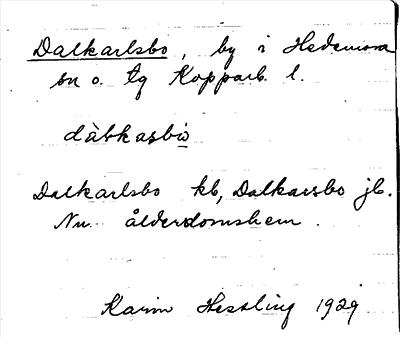 Dalkarlsbo, by i Hedemora
sn o. tg Kopparb. l.
dàlkasbo
Dalkarlsbo kb, Dalkarsbo jb.
Nu ålderdomshem.
Karin Hessling 1929